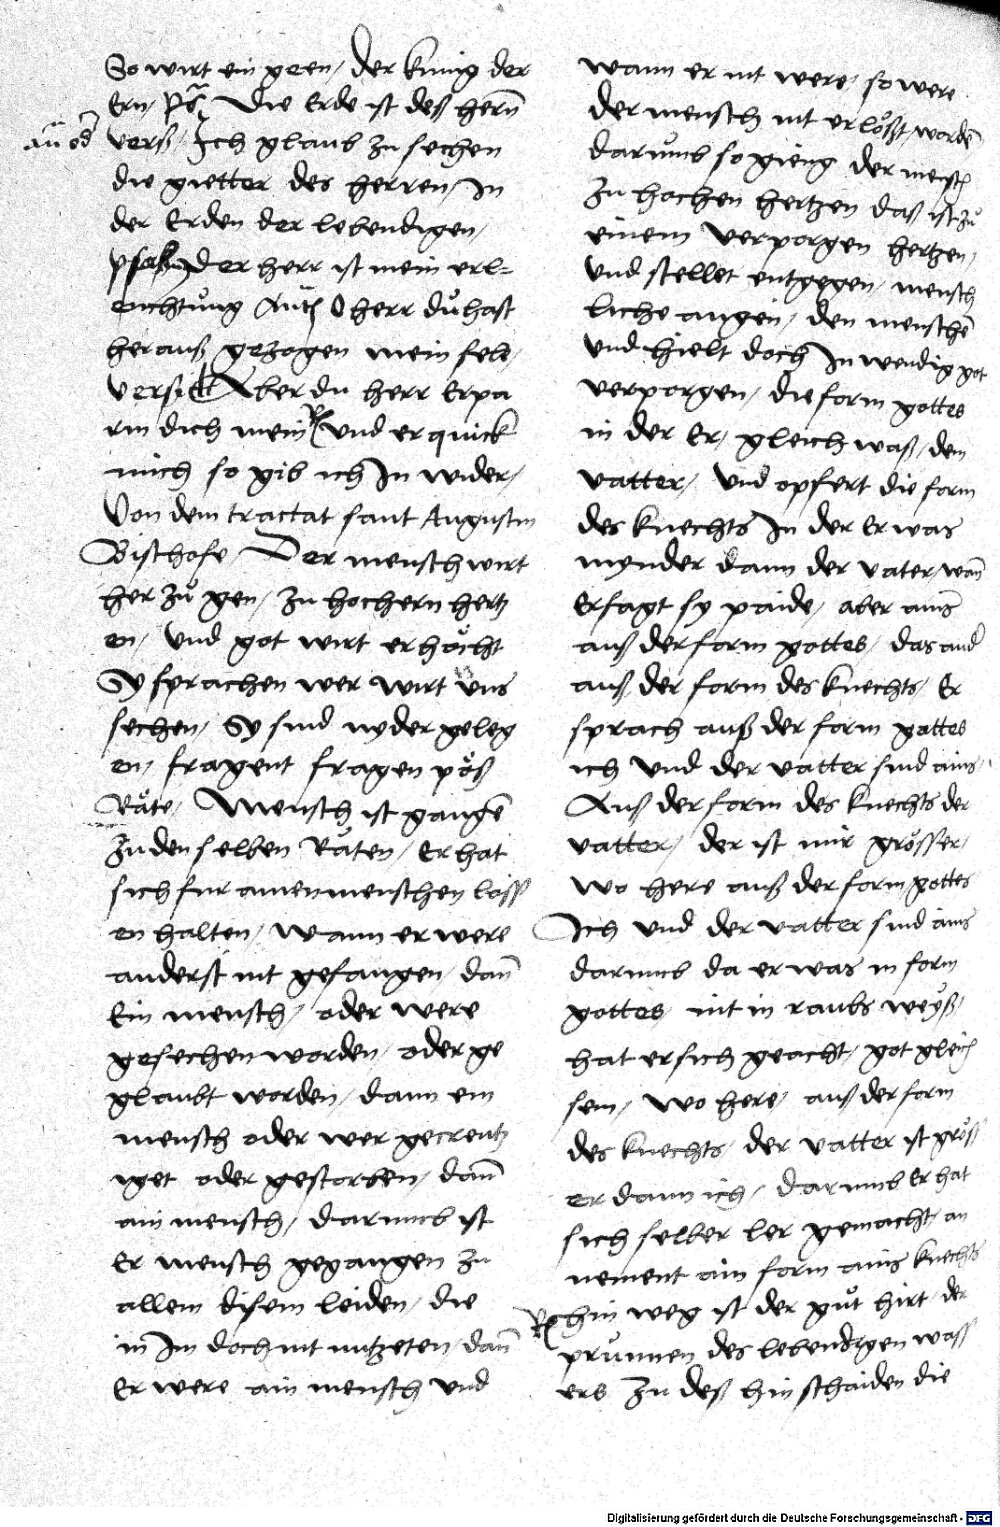 So wirt ein geen / der kunig der
Ern / ps Die Erde ist deß hern̄
verß / Ich glaub zu sechen
die gietter des herren / In
der Erden der lebendigen /
psalm Der herr ist mein erl=
eichtung Antͥ O herr du hast
herauß gezogen mein sele /
versickel Aber du herr Erpa
rm dich mein Und erquick
mich so gib ich In wider /
Von dem tractat sant Augustin
Bischofe / Der mensch wirt
her zů gen / zu hochern hertz
en / und got wirt erhöcht
Sy sprachen wer wirt uns
sechen / Sy sind nyder geleg
en / fragent fragen pöß
Räte / Mensch ist gangē
Zu den selben Räten / Er hat
sich fur ainen menschen lass
en halten / Wann er were
anderst nit gefangen / dan̄
Ein mensch / oder were
gesechen worden / oder ge
glaubt worden / dann ein
mensch oder wer gecreutz
iget oder gestorben / dan̄
ain mensch / darumb ist
Er mensch gegangen zu
allem disem leiden / die
in Im doch nit nutzeten / dan̄
Er were ain mensch und
wann er nit were / so were
der mensch nit erlößt wordē
darumb so gieng der mensch
zu hochen hertzen daß ist zů
einem verporgen hertzen /
und stellet entgegen / mensch
liche augen / den menschē
und hielt doch Inwendig got
verporgen / die form gottes
in der Er / gleich waß / dem
vatter / und opfert die form
des knechts In der Er was
mynder dann der vater / wan̄
Er sagt sy paide / aber ains
auß der form gottes / das and
auß der form des knechts / Er
sprach auß der form gottes
ich und der vatter sind ains /
Auß der form des knechts der
vatter / der ist mir grösser /
Wo here auß der form gottes
Ich und der vatter sind ains
darumb da er was in form
gottes / nit in raubs weyß /
hat er sich geacht / got gleich
sein / Wo here / auß der form
des knechts / der vatter ist größ
er dann ich / darumb Er hat
sich selber ler gemacht / an
nement ain form ains knechts
hin weg ist der gůt hirt / der
prunnen des lebendigen wass
ers zu deß hinschaiden die
Digitalisierung gefördert durch die Deutsche Forschungsgemeinschaft - DFG